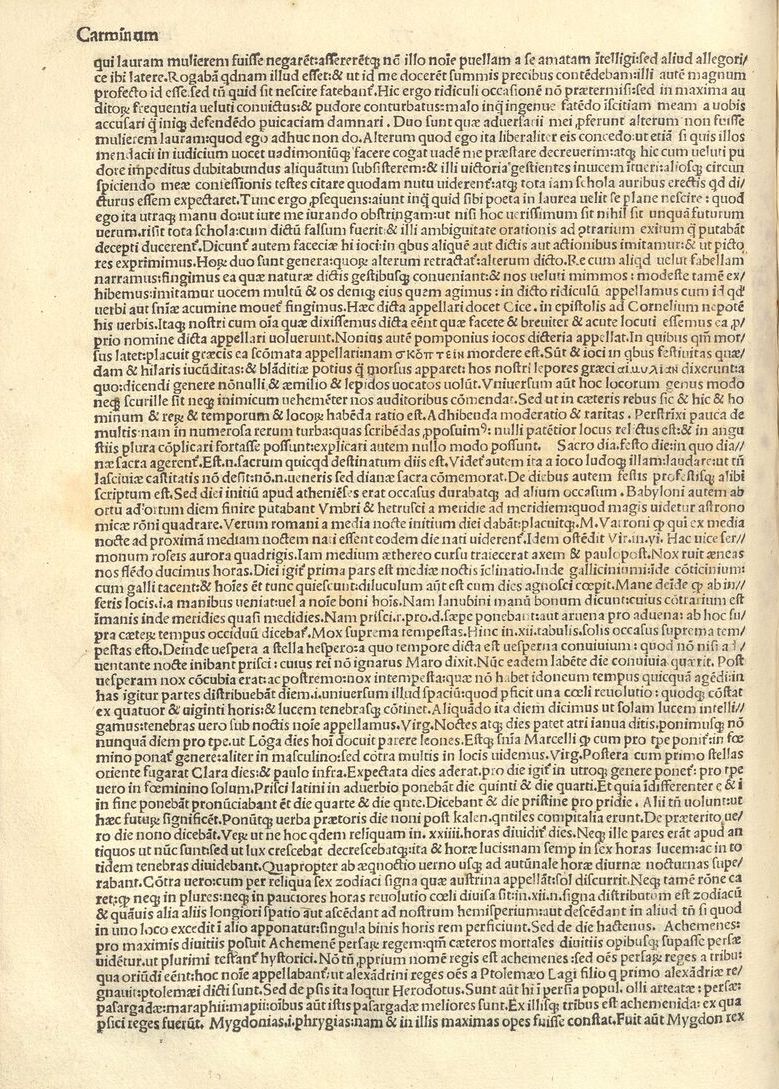 Carminum
qui lauram mulierem fuisse negarẽt:assererẽtq; nõ illo noĩe puellam a se amatam ĩtelligi:sed aliud allegori/
ce ibi latere.Rogabã qdnam illud esset:& ut id me docerẽt summis precibus contẽdebam:illi autẽ magnum
profecto id esse.sed tñ quid sit nescire fatebant̃.Hic ergo ridiculi occasionẽ nõ prætermisi:sed in maxima au
ditoꝝ frequentia ueluti conuictus:& pudore conturbatus:malo inq̃ ingenue fatẽdo ĩscitiam meam a uobis
accusari q̃ iniq; defendẽdo puicaciam damnari. Duo sunt quæ aduersarii mei ꝓferunt alterum non fuisse
mulierem lauram:quod ego adhuc non do.Alterum quod ego ita liberaliter eis concedo:ut etiã si quis illos
mendacii in iudicium uocet uadimoniũq; facere cogat uadẽ me præstare decreuerim:atq; hic cum ueluti pu
dore impeditus dubitabundus aliquãtum subsisterem:& illi uictoria gestientes inuicem ĩtueri:aliosq; circun
spiciendo meæ confessionis testes citare quodam nutu uiderent̃:atq; tota iam schola auribus erectis qd di/
cturus essem expectaret.Tunc ergo ꝓsequens:aiunt inq̃ quid sibi poeta in laurea uelit se plane nescire: quod
ego ita utraq; manu do:ut iure me iurando obstringam:ut nisi hoc uerissimum sit nihil sit unquã futurum
uerum.risit tota schola:cum dictũ falsum fuerit:& illi ambiguitate orationis ad ꝯtrarium exitum q̃ putabãt
decepti ducerent̃.Dicunt̃ autem faceciæ hi ioci:in qbus aliquẽ aut dictis aut actionibus imitamur:& ut picto
res exprimimus.Hoꝝ duo sunt genera:quoꝝ alterum retractat̃:alterum dicto.Re cum aliqd uelut fabellam
narramus:fingimus ea quæ naturæ dictis gestibusq; conueniant:& nos ueluti mimmos: modeste tamẽ ex/
hibemus:imitamur uocem multũ & os deniq; eius quem agimus: in dicto ridiculũ appellamus cum id qđ
uerbi aut sñiæ acumine mouet̃ fingimus.Hæc dicta appellari docet Cice. in epistolis ad Cornelium nepotẽ
his uerbis.Itaq; nostri cum oĩa quæ dixissemus dicta eẽnt quæ facete & breuiter & acute locuti essemus ea ꝓ/
prio nomine dicta appellari uoluerunt.Nonius autẽ pomponius iocos dicteria appellat.In quibus qm̃ mor/
sus latet:placuit græcis ea scõmata appellari:nam σκόπτειν mordere est.Sũt & ioci in qbus festiuitas quæ/
dam & hilaris iucũditas:& blãditiæ potius q̃ morsus apparet: hos nostri lepores græci αἱμυλίαν dixerunt:a
quo:dicendi genere nõnulli & æmilio & lepidos uocatos uolũt.Vniuersum aũt hoc locorum genus modo
neq; scurille sit neq; inimicum uehemẽter nos auditoribus cõmendat.Sed ut in cæteris rebus sic & hic & ho
minum & reꝝ & temporum & locoꝝ habẽda ratio est.Adhibenda moderatio & raritas. Perstrĩxi pauca de
multis nam in numerosa rerum turba:quas scribẽdas ꝓposuimꝰ: nulli patẽtior locus relictus est:& in angu
stiis plura cõplicari fortasse possunt:explicari autem nullo modo possunt. Sacro dia.festo die:in quo dia//
næ sacra agerent̃.Est.n.sacrum quicqd destinatum diis est.Videt̃ autem ita a ioco ludoq; illam:laudare:ut tñ
lasciuiæ castitatis nõ desit:nõ.n.ueneris sed dianæ sacra cõmemorat.De diebus autem festis profestisq; alibi
scriptum est.Sed diei initiũ apud atheniẽses erat occasus durabatq; ad alium occasum. Babyloni autem ab
ortu ad ortum diem finire putabant Vmbri & hetrusci a meridie ad meridiem:quod magis uidetur astrono
micæ rõni quadrare.Verum romani a media nocte initium diei dabãt:placuitq;.M.Varroni ꝙ qui ex media
nocte ad proximã mediam noctem nati essent eodem die nati uiderent̃.Idem ostẽdit Vir.in.vi. Hac uice ser//
monum roseis aurora quadrigis.Iam medium æthereo cursu traiecerat axem & paulo post.Nox ruit æneas
nos flẽdo ducimus horas.Diei igit̃ prima pars est mediæ noctis ĩclinatio.Inde gallicinium:ĩde cõticinium:
cum galli tacent:& hoĩes ẽt tunc quiescunt:diluculum aũt est cum dies agnosci cœpit.Mane deĩde ꝙ ab in//
feris locis.i.a manibus ueniat:uel a noĩe boni hoĩs.Nam lanubini manũ bonum dicunt:cuius cõtrarium est
ĩmanis inde meridies quasi medidies.Nam prisci.r.pro.d.sæpe ponebant:aut aruena pro aduena: ab hoc su/
pra cæteꝝ tempus occiduũ dicebat̃.Mox suprema tempestas.Hinc in.xii.tabulis.solis occasus suprema tem/
pestas esto.Deinde uespera a stella hespero:a quo tempore dicta est uesperna conuiuium: quod nõ nisi ad /
uentante nocte inibant prisci: cuius rei nõ ignarus Maro dixit.Nũc eadem labẽte die conuiuia quærit. Post
uesperam nox cõcubia erat:ac postremo:nox intempesta:quæ nõ habet idoneum tempus quicquã agẽdi:in
has igitur partes distribuebãt diem.i.uniuersum illud spaciũ:quod pficit una cœli reuolutio: quodq; cõstat
ex quatuor & uiginti horis:& lucem tenebrasq; cõtinet.Aliquãdo ita diem dicimus ut solam lucem intelli//
gamus:tenebras uero sub noctis noĩe appellamus.Virg.Noctes atq; dies patet atri ianua ditis.ponimusq; nõ
nunquã diem pro tpe.ut Lõga dies hoĩ docuit parere leones.Estq; sñia Marcelli ꝙ cum pro tpe ponit̃:in fœ
mino ponat̃ genere:aliter in masculino:sed cõtra multis in locis uidemus.Virg.Postera cum primo stellas
oriente fugarat Clara dies:& paulo infra.Expectata dies aderat.pro die igit̃ in utroq; genere ponet̃: pro tpe
uero in fœminino solum.Prisci latini in aduerbio ponebãt die quinti & die quarti.Et quia ĩdifferenter e & i
in fine ponebãt pronũciabant ẽt die quarte & die qnte.Dicebant & die pristine pro pridie. Alii tñ uolunt:ut
hæc futuꝝ significẽt.Ponũtq; uerba prætoris die noni post kalen.qntiles compitalia erunt.De præterito ue/
ro die nono dicebãt.Veꝝ ut ne hoc qdem reliquam in. xxiiii.horas diuidit̃ dies.Neq; ille pares erãt apud an
tiquos ut nũc sunt:sed ut lux crescebat decrescebatq;:ita & horæ lucis:nam semp in sex horas lucem:ac in to
tidem tenebras diuidebant.Quapropter ab æqnoctio uerno usq; ad autũnale horæ diurnæ nocturnas supe/
rabant.Cõtra uero:cum per reliqua sex zodiaci signa quæ austrina appellãt:sol discurrit.Neq; tamẽ rõne ca
ret:ꝙ neq; in plures:neq; in pauciores horas reuolutio cœli diuisa sit:in.xii.n.signa distributum est zodiacũ
& quãuis alia aliis longiori spatio aut ascẽdant ad nostrum hemisperium:aut descẽdant in aliud tñ si quod
in uno loco excedit ĩ alio apponatur:singula binis horis rem perficiunt.Sed de die hactenus. Achemenes:
pro maximis diuitiis posuit Achemenẽ persaꝝ regem:qm̃ cæteros mortales diuitiis opibusq; supasse persæ
uidẽtur.ut plurimi testant̃ hystorici. Nõ tñ ꝓprium nomẽ regis est achemenes:sed oẽs persaꝝ reges a tribu:
qua oriũdi eẽnt:hoc noĩe appellabant̃:ut alexãdrini reges oẽs a Ptolemæo Lagi filio q primo alexãdriæ re/
gnauit:ptolemæi dicti sunt.Sed de psis ita loqtur Herodotus.Sunt aũt hi ĩ persia popul. olli arteatæ: persæ:
pasargadæ:maraphii:mapii:oĩbus aũt istis pasargadæ meliores sunt.Ex illisq; tribus est achemenida: ex qua
psici reges fuerũt. Mygdonias.i.phrygias:nam & in illis maximas opes fuisse constat.Fuit aũt Mygdon rex